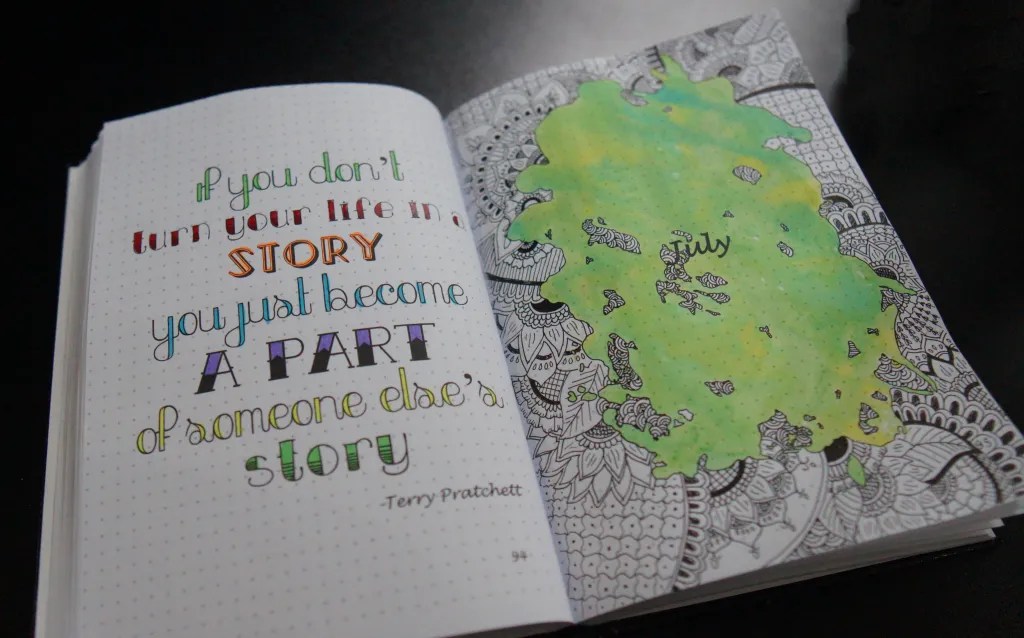 if you don't
turn your life in a
STORY
you just become
A PART
of someone else's
story
-Terry Pratchett
94
July